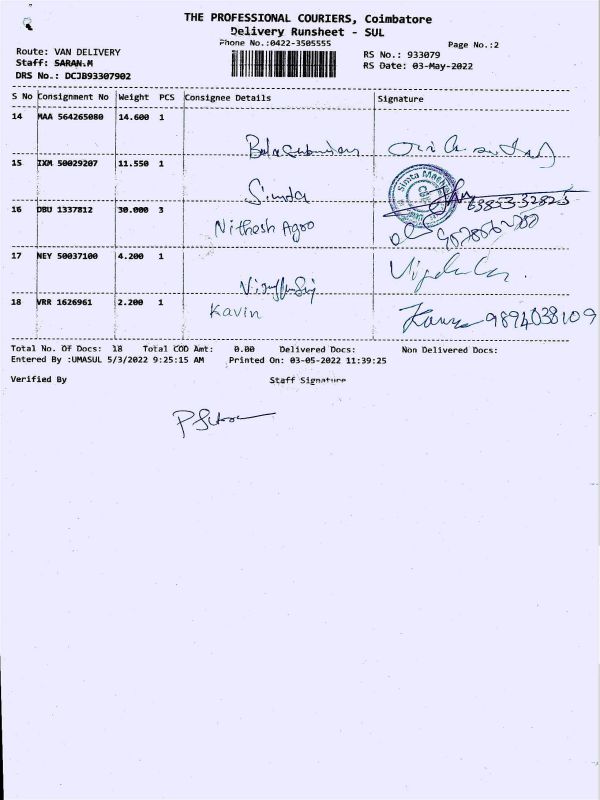 THE PROFESSIONAL COURIERS, Coimbatore
Delivery Runsheet - SUL
Phone No.:0422-3505555
Page No.:2
Route: VAN DELIVERY
RS No.: 933079
Staff: SARAN.M
RS Date: 03-May-2022
DRS No.: DCJB93307902
S No Consignment No Weight PCS Consignee Details Signature
14 MAA 564265080 14.600 1
15 IXM 50029207 11.550 1
Simta
63853-32825
16 DBU 1337812 30.000 3
Nithesh Agro
17 NEY 50037100 4.200 1
18 VRR 1626961 2.200 1
Kavin 9894038109
Total No. OF Docs: 18 Total COD Amt: 0.00 Delivered Docs: Non Delivered Docs:
Entered By :UMASUL 5/3/2022 9:25:15 AM Printed On: 03-05-2022 11:39:25
Verified By Staff Signature